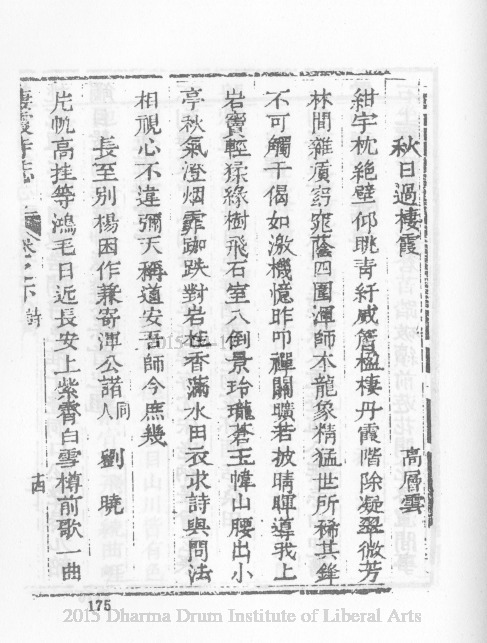 秋日過棲霞　高層雲
紺宇枕絶壁仰眺青紆威簷楹棲丹霞階除凝翠微芳
林間雜廣窈窕蔭四圍渾師本龍象精猛世所稀其鋒
不可觸千偈如激機憶昨叩禪關曠若披晴暉導我上
岩竇輕猱緣樹飛石室入倒景玲瓏蒼玉幃山腰出小
亭秋氣澄烟霏跏趺對岩桂香滿水田衣求詩與問法
相視心不違彌天稱道安吾師今庶幾
長至別楊因作兼寄渾公諾人同　劉曉
片帆高挂等鴻毛日近長安上紫霄白雪樽前歌一曲
棲霞寺志　卷之下　詩
175
2015 Dharma Drum Institute of Liberal Arts